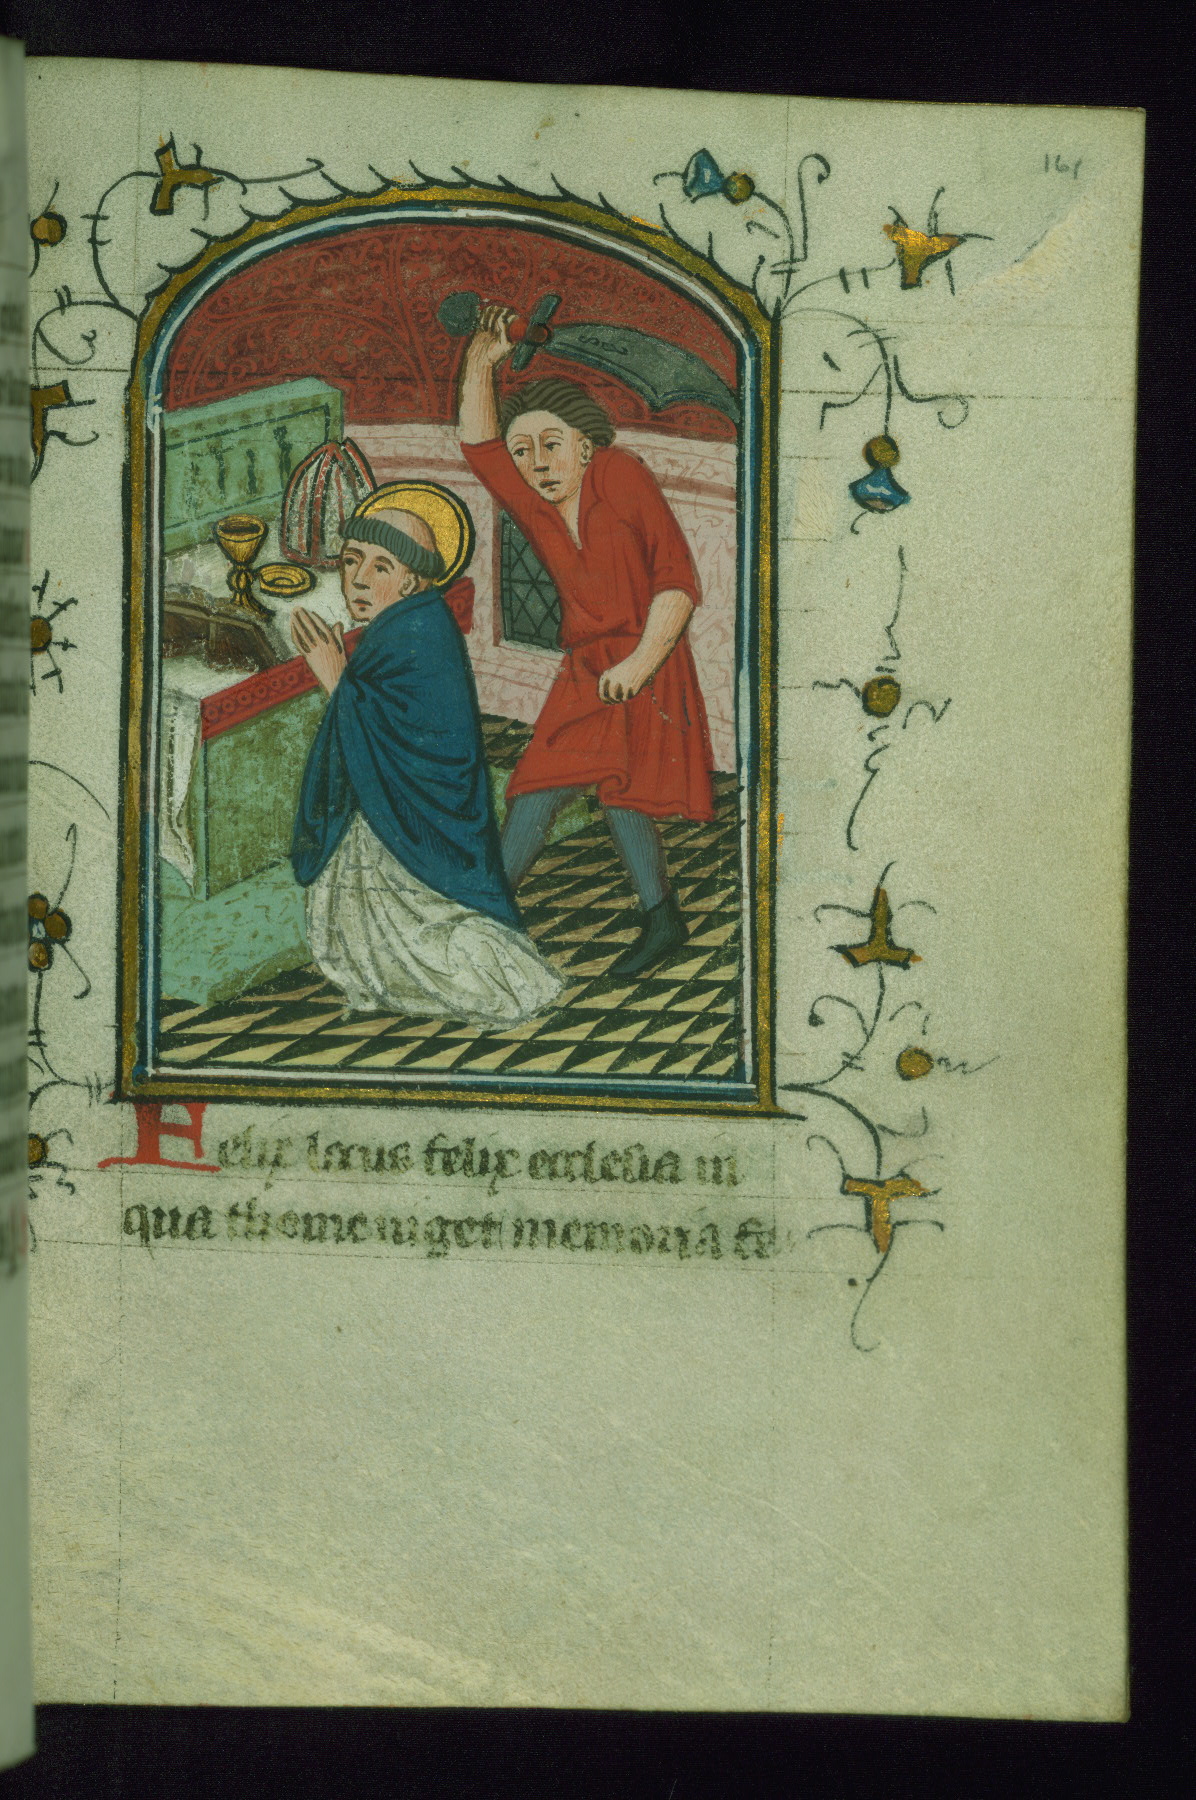 161
Felix locus felix ecclesia in
qua thome uiget memoria fe